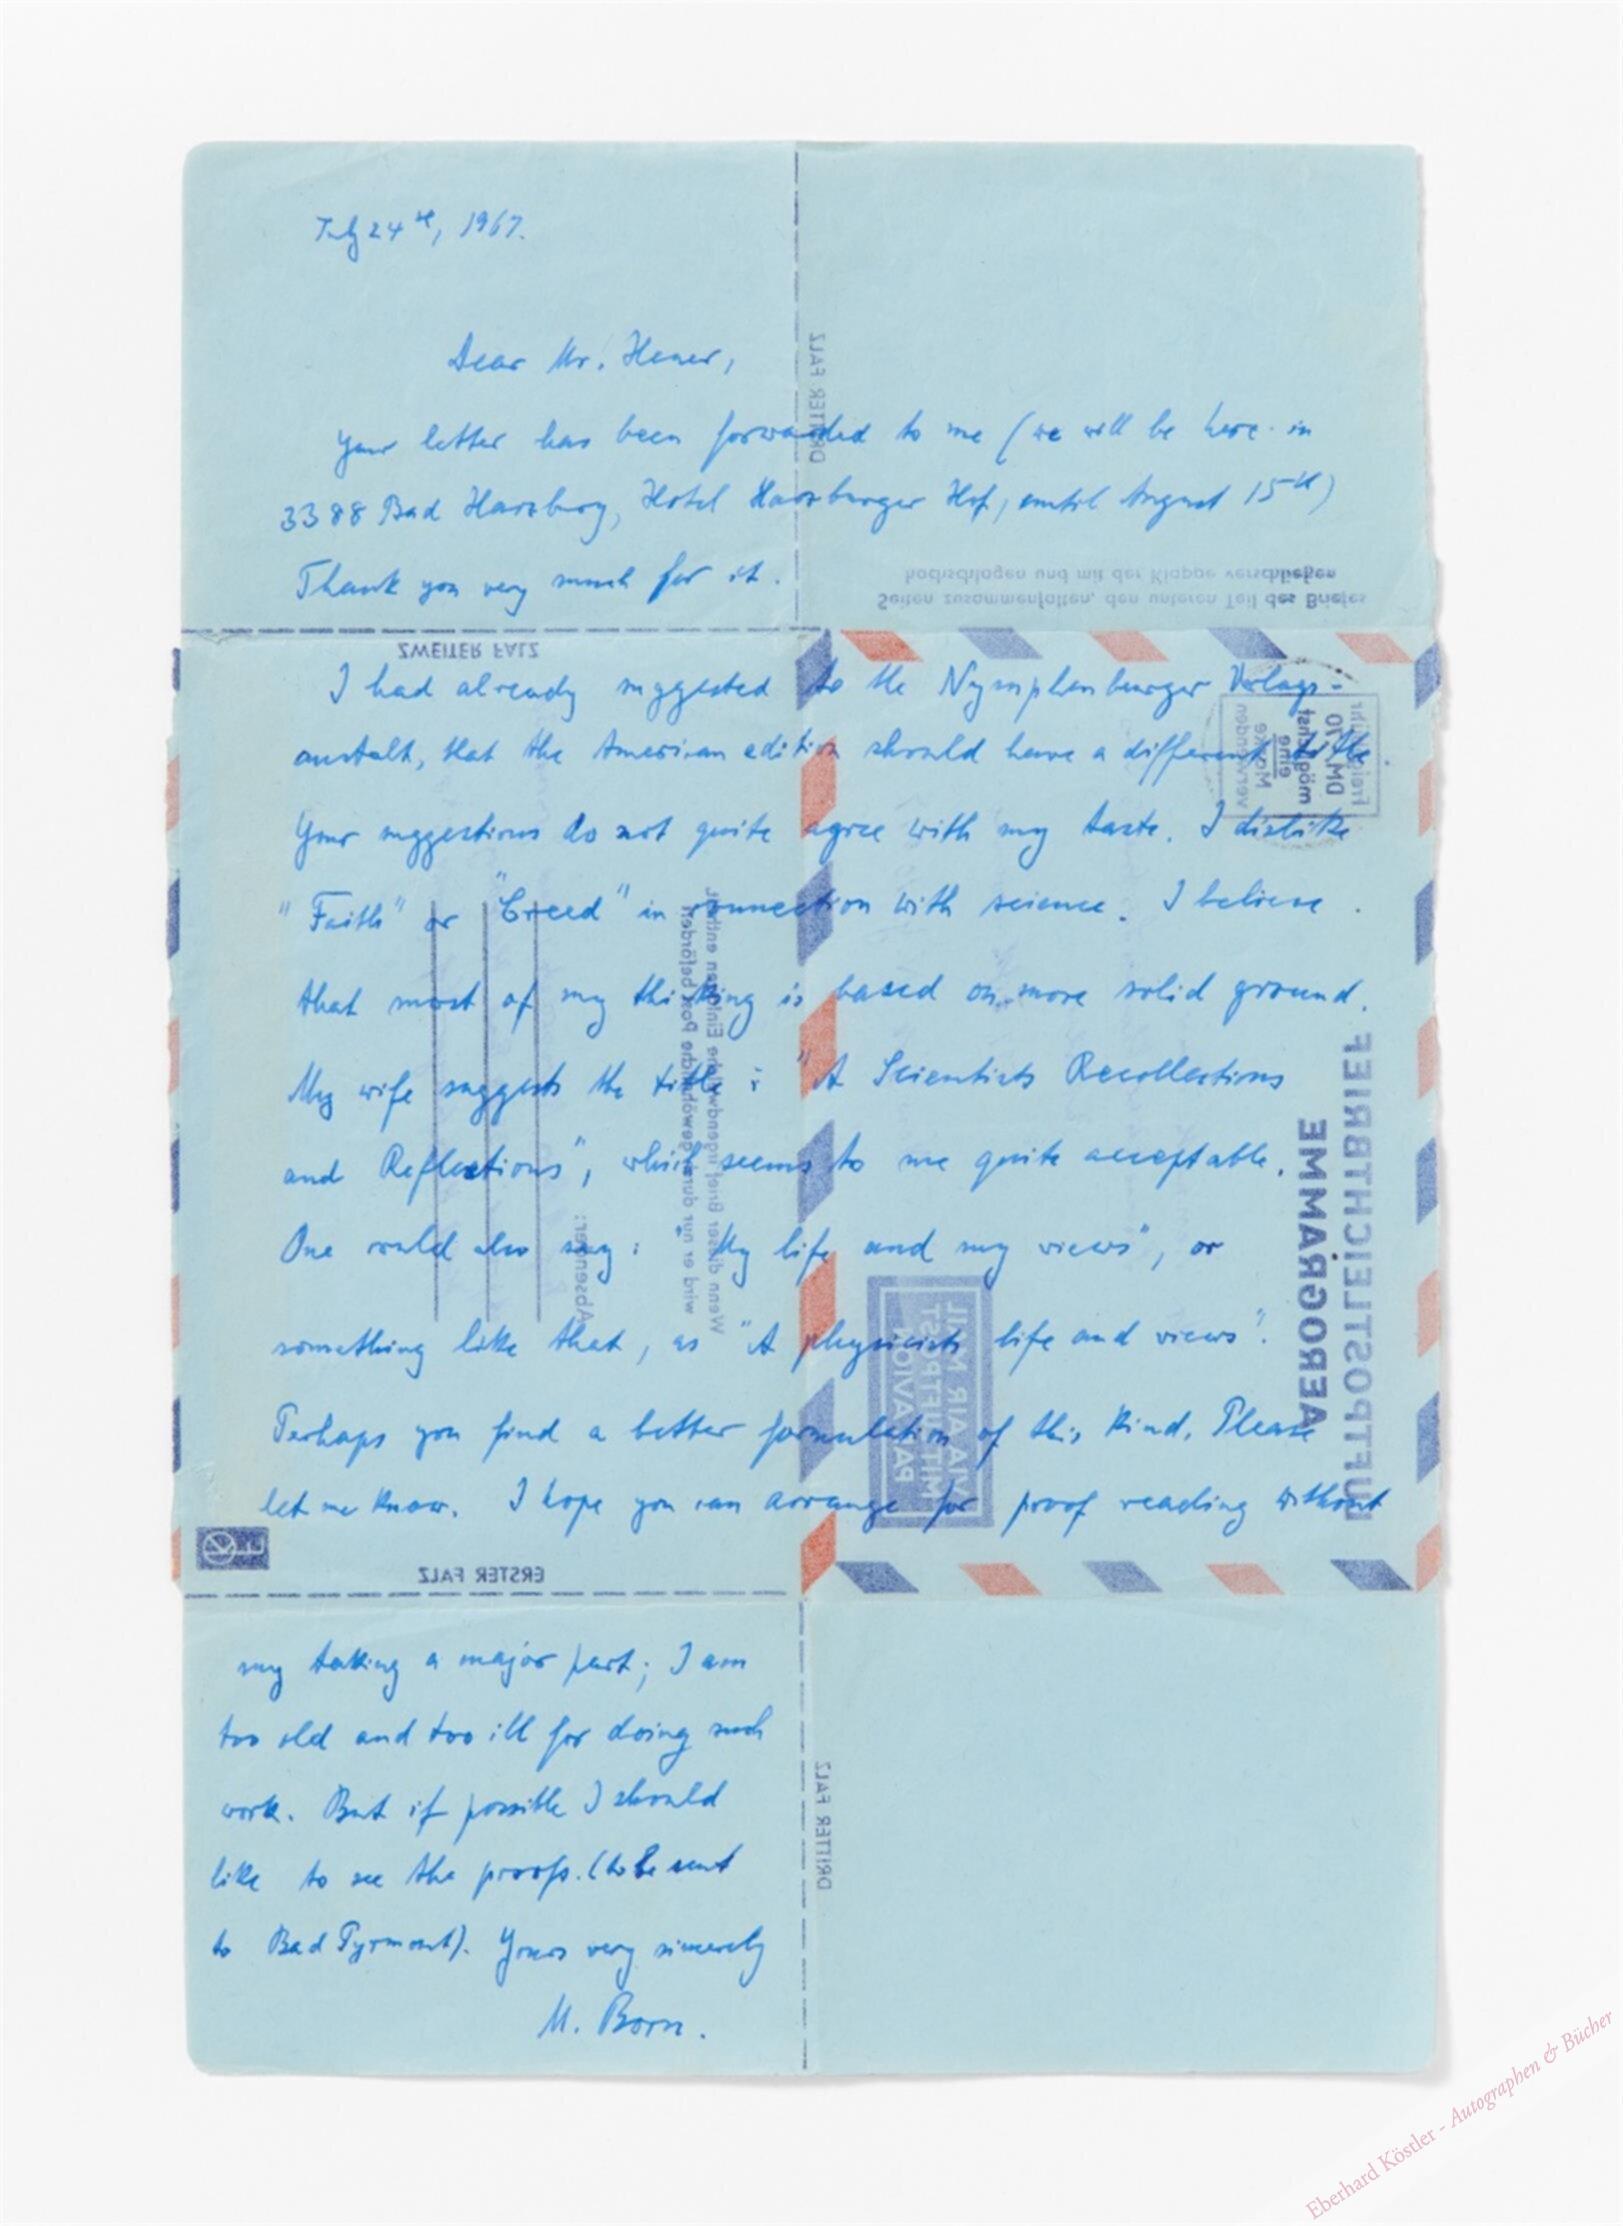 July 24th, 1967.
Dear Mr. Hener,
Your letter has been forwarded to me (we will be here in
3388 Bad Harzburg, Hotel Harzburger Hof, until August 15th)
Thank you very much for it.
DRITTER FALZ
Seiten zusammenfalten, den unteren Teil des Briefes
hochschlagen und mit der Klappe verschließen
ZWEITER FALZ
I had already suggested to the Nymphenburger Verlags-
anstalt, that the American edition should have a different title.
Your suggestions do not quite agree with my taste. I dislike
"Faith" or "Creed" in connection with science. I believe
that most of my thinking is based on more solid ground.
My wife suggests the title: "A Scientists Recollections
and Reflections", which seems to me quite acceptable.
One could also say: "My life and my views", or
something like that, as "A physicists life and views".
Perhaps you find a better formulation of this kind. Please
let me know. I hope you can arrange for proof reading without
Freigebühr
DM ,70
möglichst
eine
Marke
verwenden
Wenn dieser Brief irgendwelche Einlagen enthält,
wird er nur durch gewöhnliche Post befördert
Absender:
LUFTPOSTLEICHTBRIEF
AEROGRAMME
MIT LUFTPOST
VIA AIR MAIL
PAR AVION
ERSTER FALZ
my taking a major part; I am
too old and too ill for doing such
work. But if possible I should
like to see the proofs. (to be sent
to Bad Pyrmont). Yours very sincerely
M. Born.
DRITTER FALZ
Eberhard Köstler - Autographen & Bücher